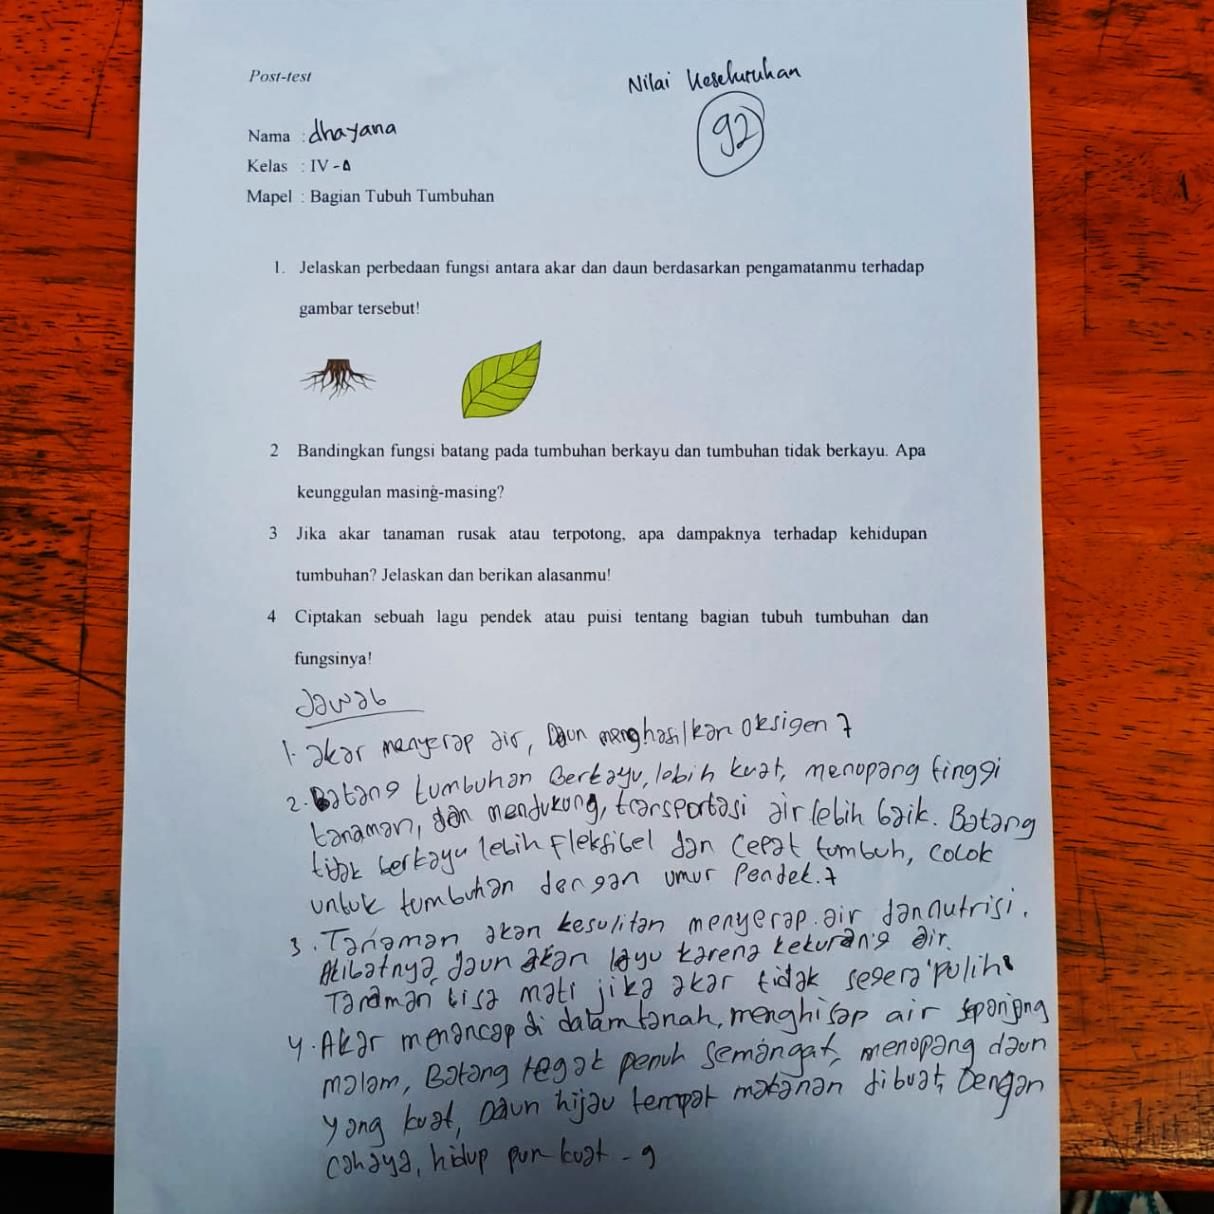 Post-test
Nilai Keseluruhan
92
Nama : dhayana
Kelas : IV - A
Mapel : Bagian Tubuh Tumbuhan
1. Jelaskan perbedaan fungsi antara akar dan daun berdasarkan pengamatanmu terhadap
gambar tersebut!
2 Bandingkan fungsi batang pada tumbuhan berkayu dan tumbuhan tidak berkayu. Apa
keunggulan masing-masing?
3 Jika akar tanaman rusak atau terpotong, apa dampaknya terhadap kehidupan
tumbuhan? Jelaskan dan berikan alasanmu!
4 Ciptakan sebuah lagu pendek atau puisi tentang bagian tubuh tumbuhan dan
fungsinya!
Jawab
1. akar menyerap air, Daun menghasilkan oksigen 7
2. Batang tumbuhan Berkayu, lebih kuat, menopang tinggi
tanaman, dan mendukung, transportasi air lebih baik. Batang
tidak berkayu lebih Fleksibel dan cepat tumbuh, colok
untuk tumbuhan dengan umur Pendek. 7
3. Tanaman akan kesulitan menyerap air dan nutrisi.
Akibatnya daun akan layu karena kekurang air.
Tanaman bisa mati jika akar tidak segera pulih.
4. Akar menancap di dalam tanah, menghisap air sepanjang
malam, Batang tegak penuh semangat, menopang daun
yang kuat, Daun hijau tempat makanan dibuat, Dengan
cahaya, hidup pun kuat - 9